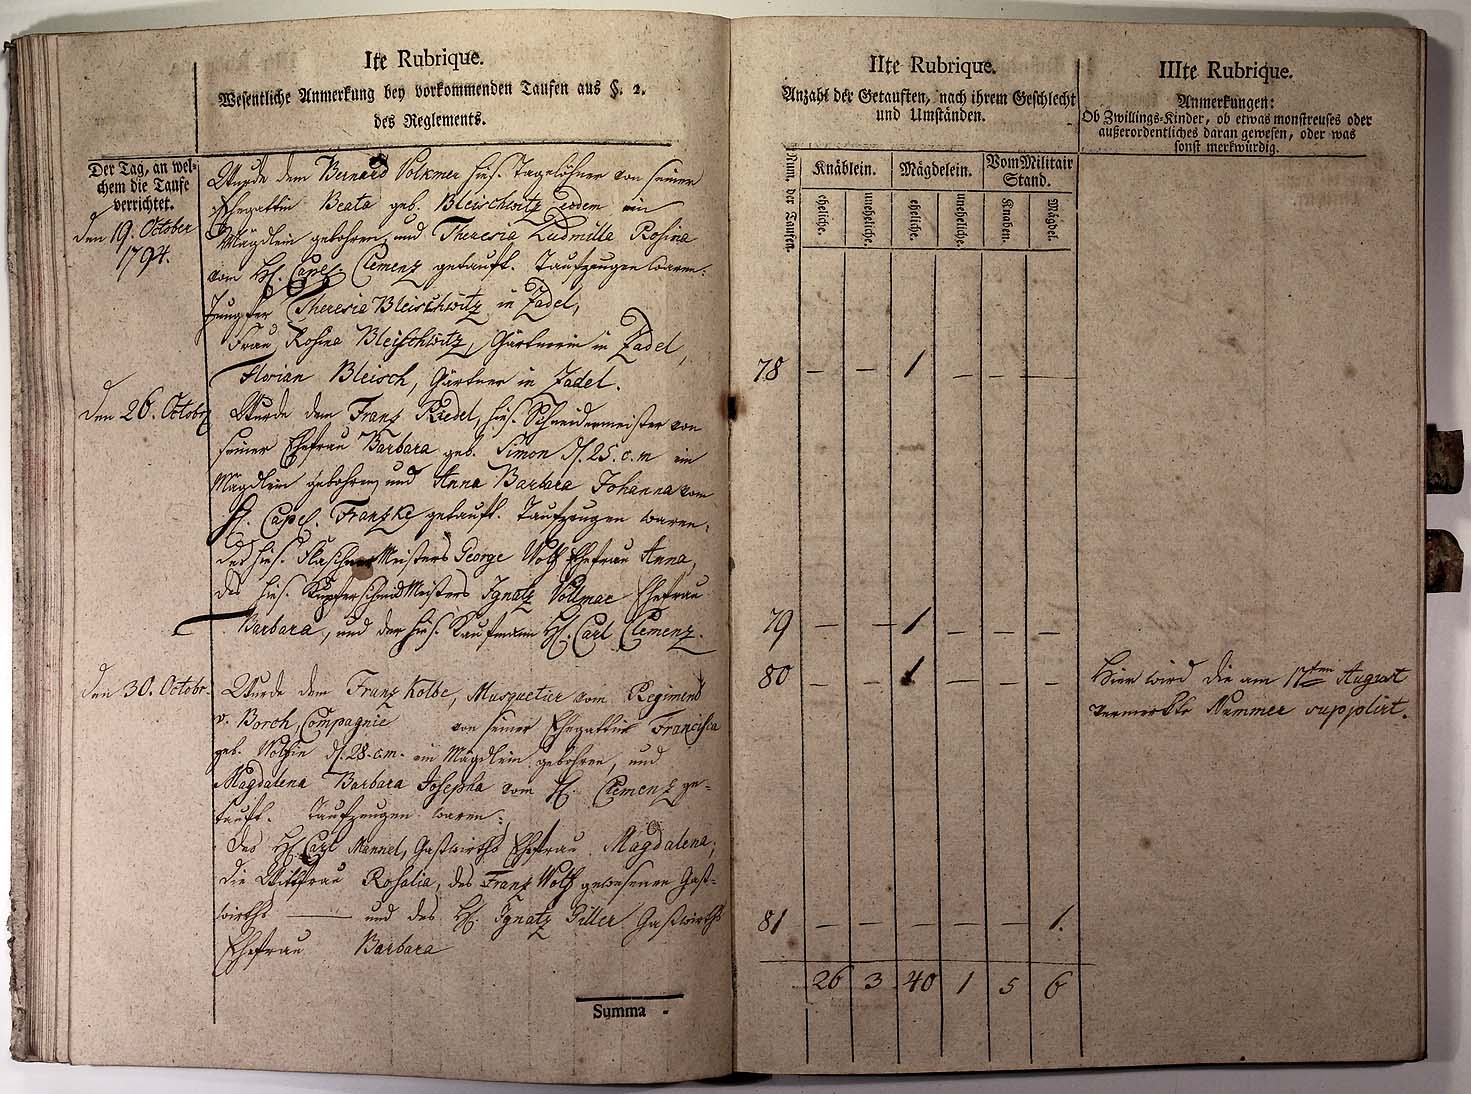 Ite Rubrique.
Wesentliche Anmerkung bey vorkommenden Taufen aus §. 2.
des Reglements.
Der Tag, an wel-
chem die Taufe
verrichtet.
den 19. October
1794.
Wurde dem Bernard Volkmer hies. Tagelöhner von seiner
Ehegattin Beata geb. Bleischwitz eodem ein
Mägdlein gebohren, und Theresia Ludmilla Rosina
vom H. Capel. Clemenz getauft. Taufzeugen waren:
Jungfer Theresia Bleischwitz in Zadel,
Frau Rosina Bleischwitz, Gärtnerin in Zadel,
Florian Bleisch, Gärtner in Zadel.
den 26. Octobr
Wurde dem Franz Riedel, hies. Schneidermeister von
seiner Ehefrau Barbara geb. Simon d. 25. c. m ein
Mägdlein gebohren, und Anna Barbara Johanna vom
H. Capel. Franzke getauft. Taufzeugen waren:
Des hies. Meisters George Wolf Ehefrau Anna,
des hies. Kupferschmid Meisters Ignatz Vollmar Ehefrau
Barbara, und der hies. Kaufmann H. Carl Clemenz.
den 30. Octobr.
Wurde dem Franz Kolbe, Musquetier vom Regiment
v. Borch, Compagnie von seiner Ehegattin Francisca
geb. Wolfin d. 28. c. m. ein Mägdlein gebohren, und
Magdalena Barbara Josepha vom H. Clemenz ge-
tauft. Taufzeugen waren:
Des H. Carl Mannel, Gastwirths Ehefrau Magdalena,
die Wittfrau Rosalia, des Franz Wolf gewesenen Gast-
wirths — und des H. Ignatz Giller Gastwirths
Ehefrau Barbara
Summa -
IIte Rubrique.
Anzahl der Getauften, nach ihrem Geschlecht
und Umständen.
Num. der Taufen.
Knäblein.
Mägdelein.
Vom Militair
Stand.
eheliche.
uneheliche.
eheliche.
uneheliche.
Knaben.
Mägdel.
78 — — 1 — — —
79 — — 1 — — —
80 — — 1 — — —
81 — — — — — 1.
26 3 40 1 5 6
IIIte Rubrique.
Anmerkungen:
Ob Zwillings-Kinder, ob etwas monstreuses oder
außerordentliches daran gewesen, oder was
sonst merkwürdig.
Hier wird die am 17ten August
vermerkte Nummer supplirt.